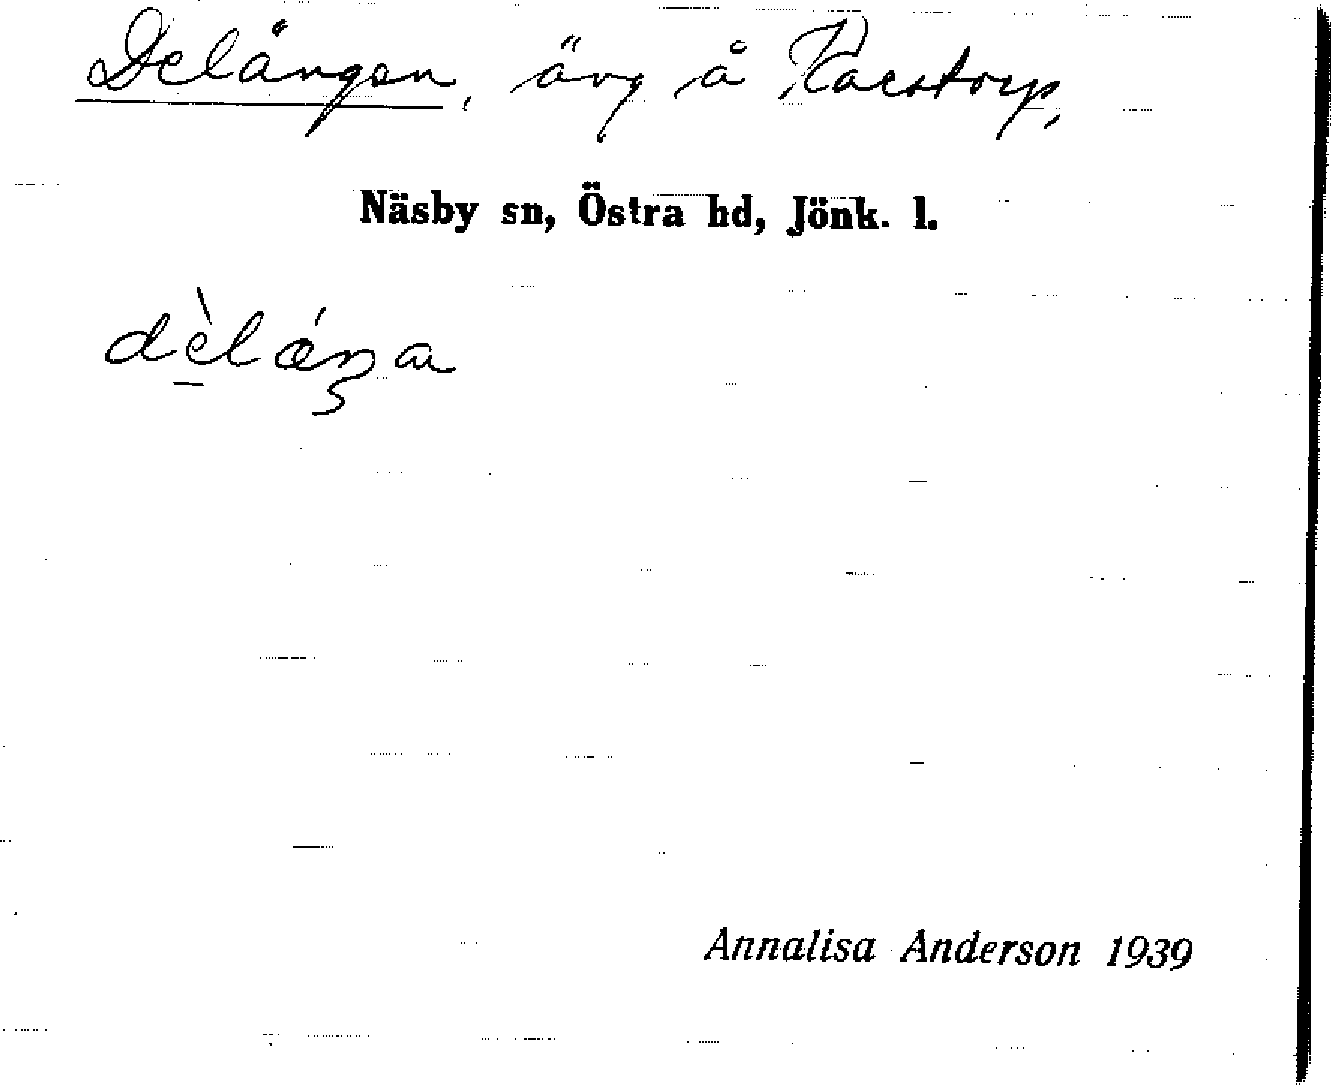 Delängen, äng å Karstorp,
Näsby sn, Östra hd, Jönk. l.
Annalisa Anderson 1939